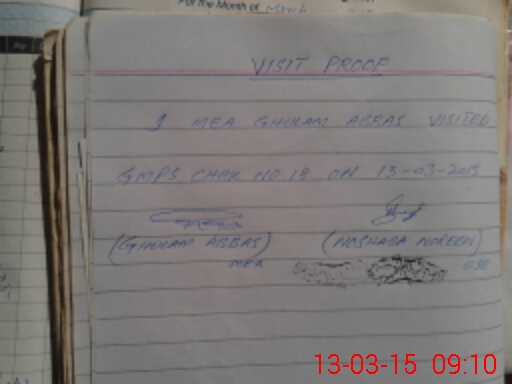 For the Month of March
VISIT PROOF
I MEA GHULAM ABBAS VISITED
GMPS CHAK NO 18 ON 13-03-2015
(GHULAM ABBAS) (NOSHABA NOREEN)
MEA
13-03-15 09:10